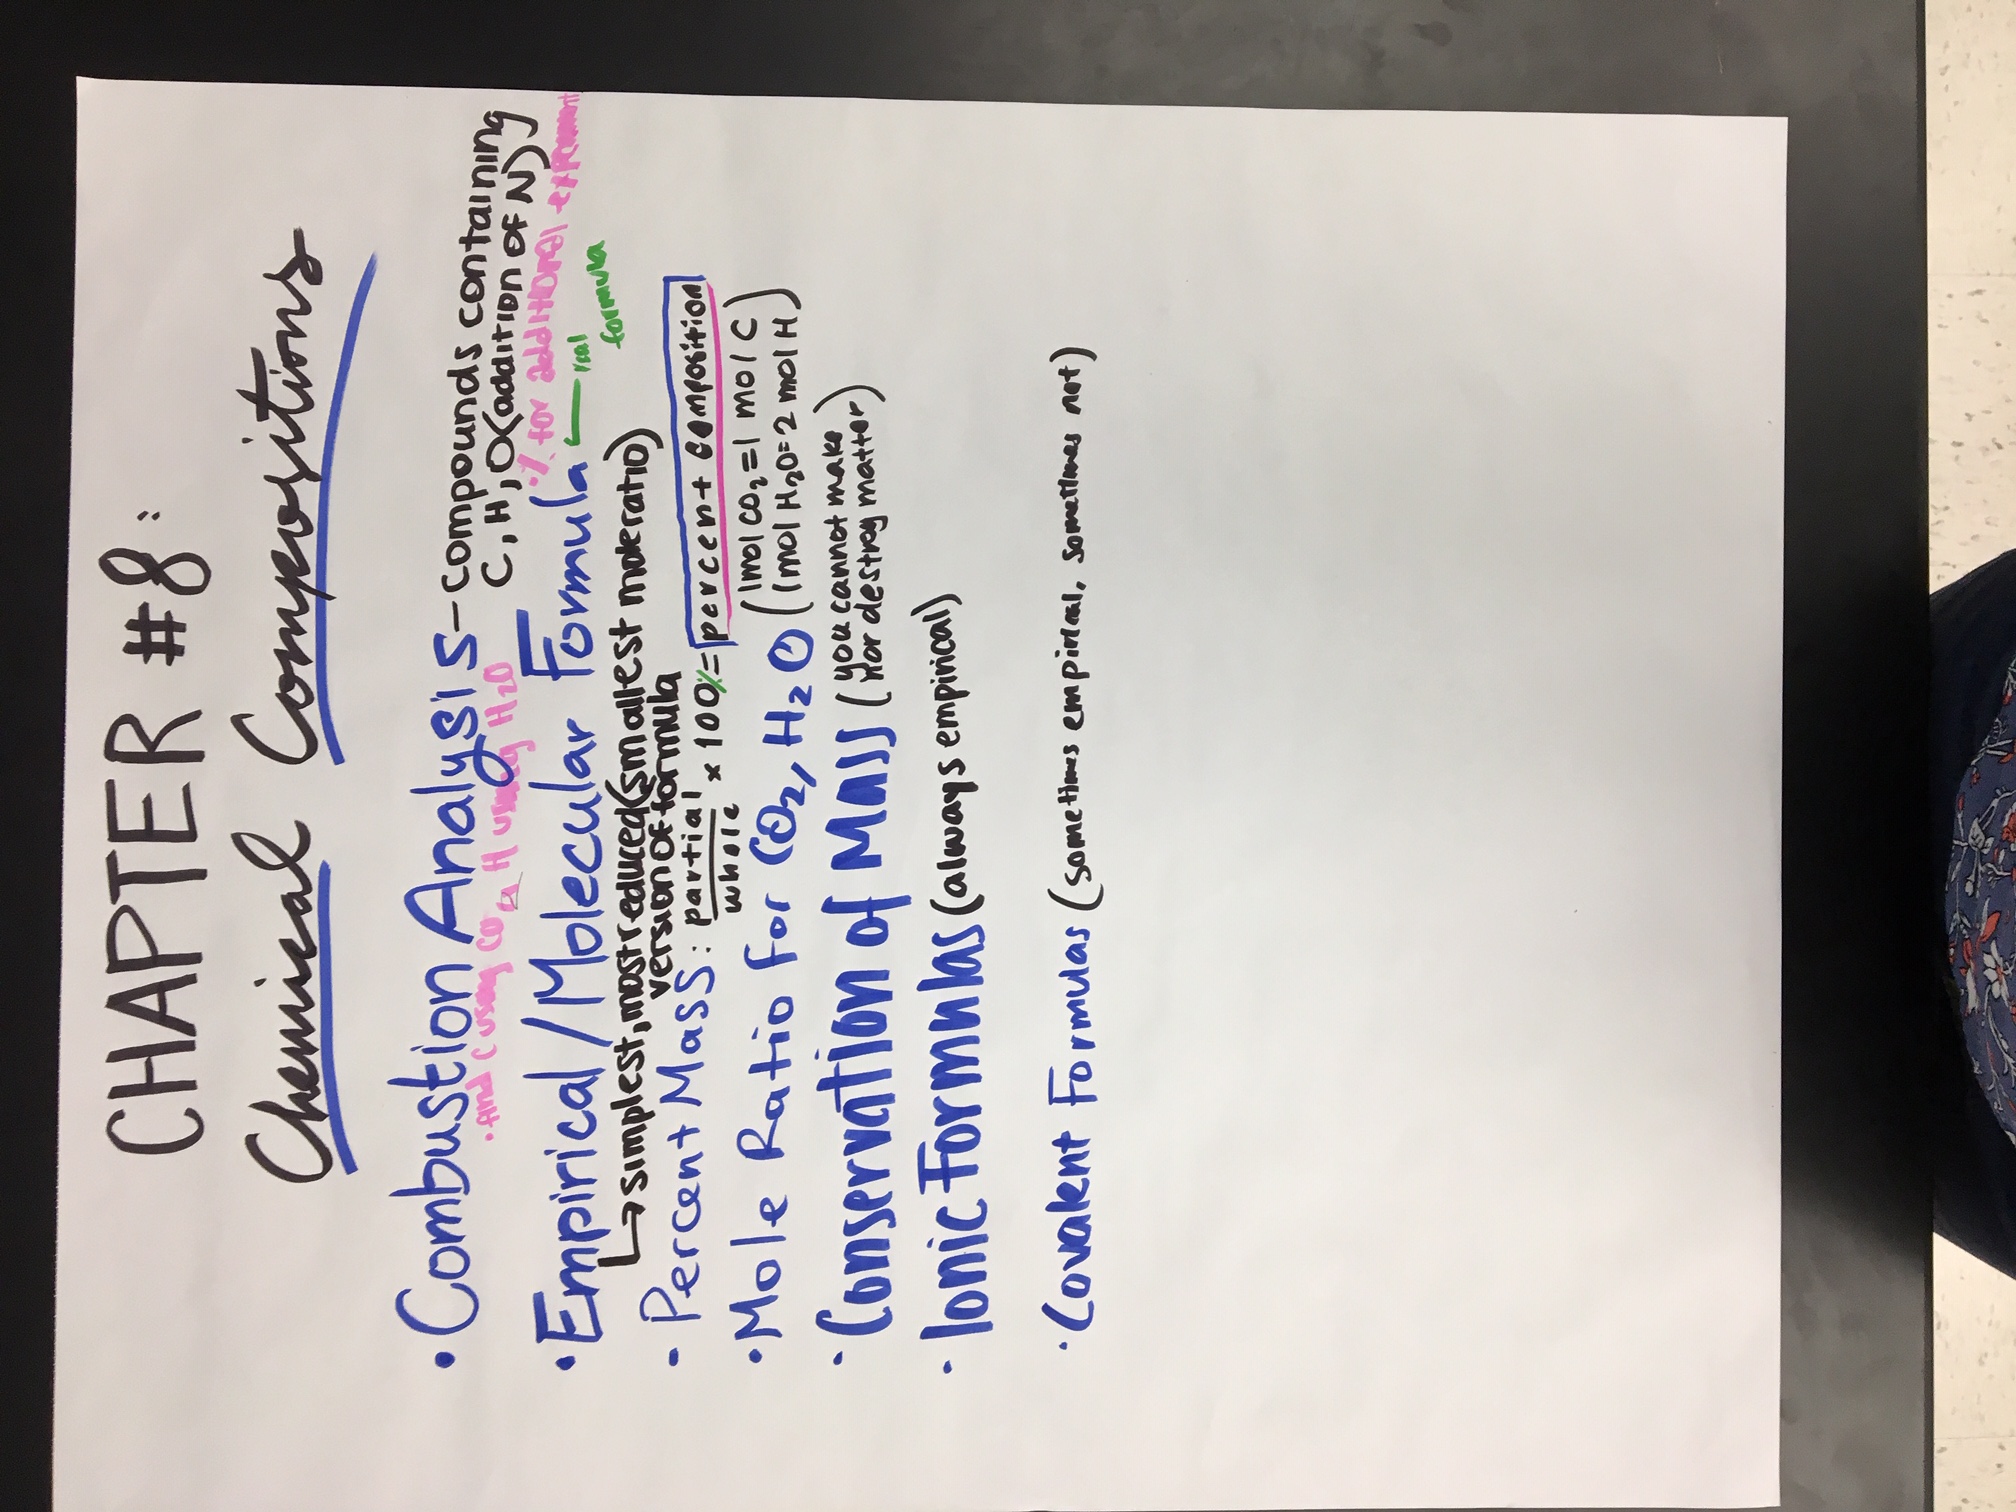 CHAPTER #8:
Chemical Compositions
• Combustion Analysis - compounds containing
C, H, O (addition of N)
• find C using CO2, H using H2O
• % for additional experiment
• Empirical/Molecular Formula ← real
formula
→ simplest, most reduced (smallest mole ratio)
version of formula
• Percent Mass: partial/whole x 100% = percent composition
• Mole Ratio for CO2, H2O (1 mol CO2 = 1 mol C)
(1 mol H2O = 2 mol H)
• Conservation of Mass (you cannot make
nor destroy matter)
• Ionic Formulas (always empirical)
• Covalent Formulas (sometimes empirical, sometimes not)